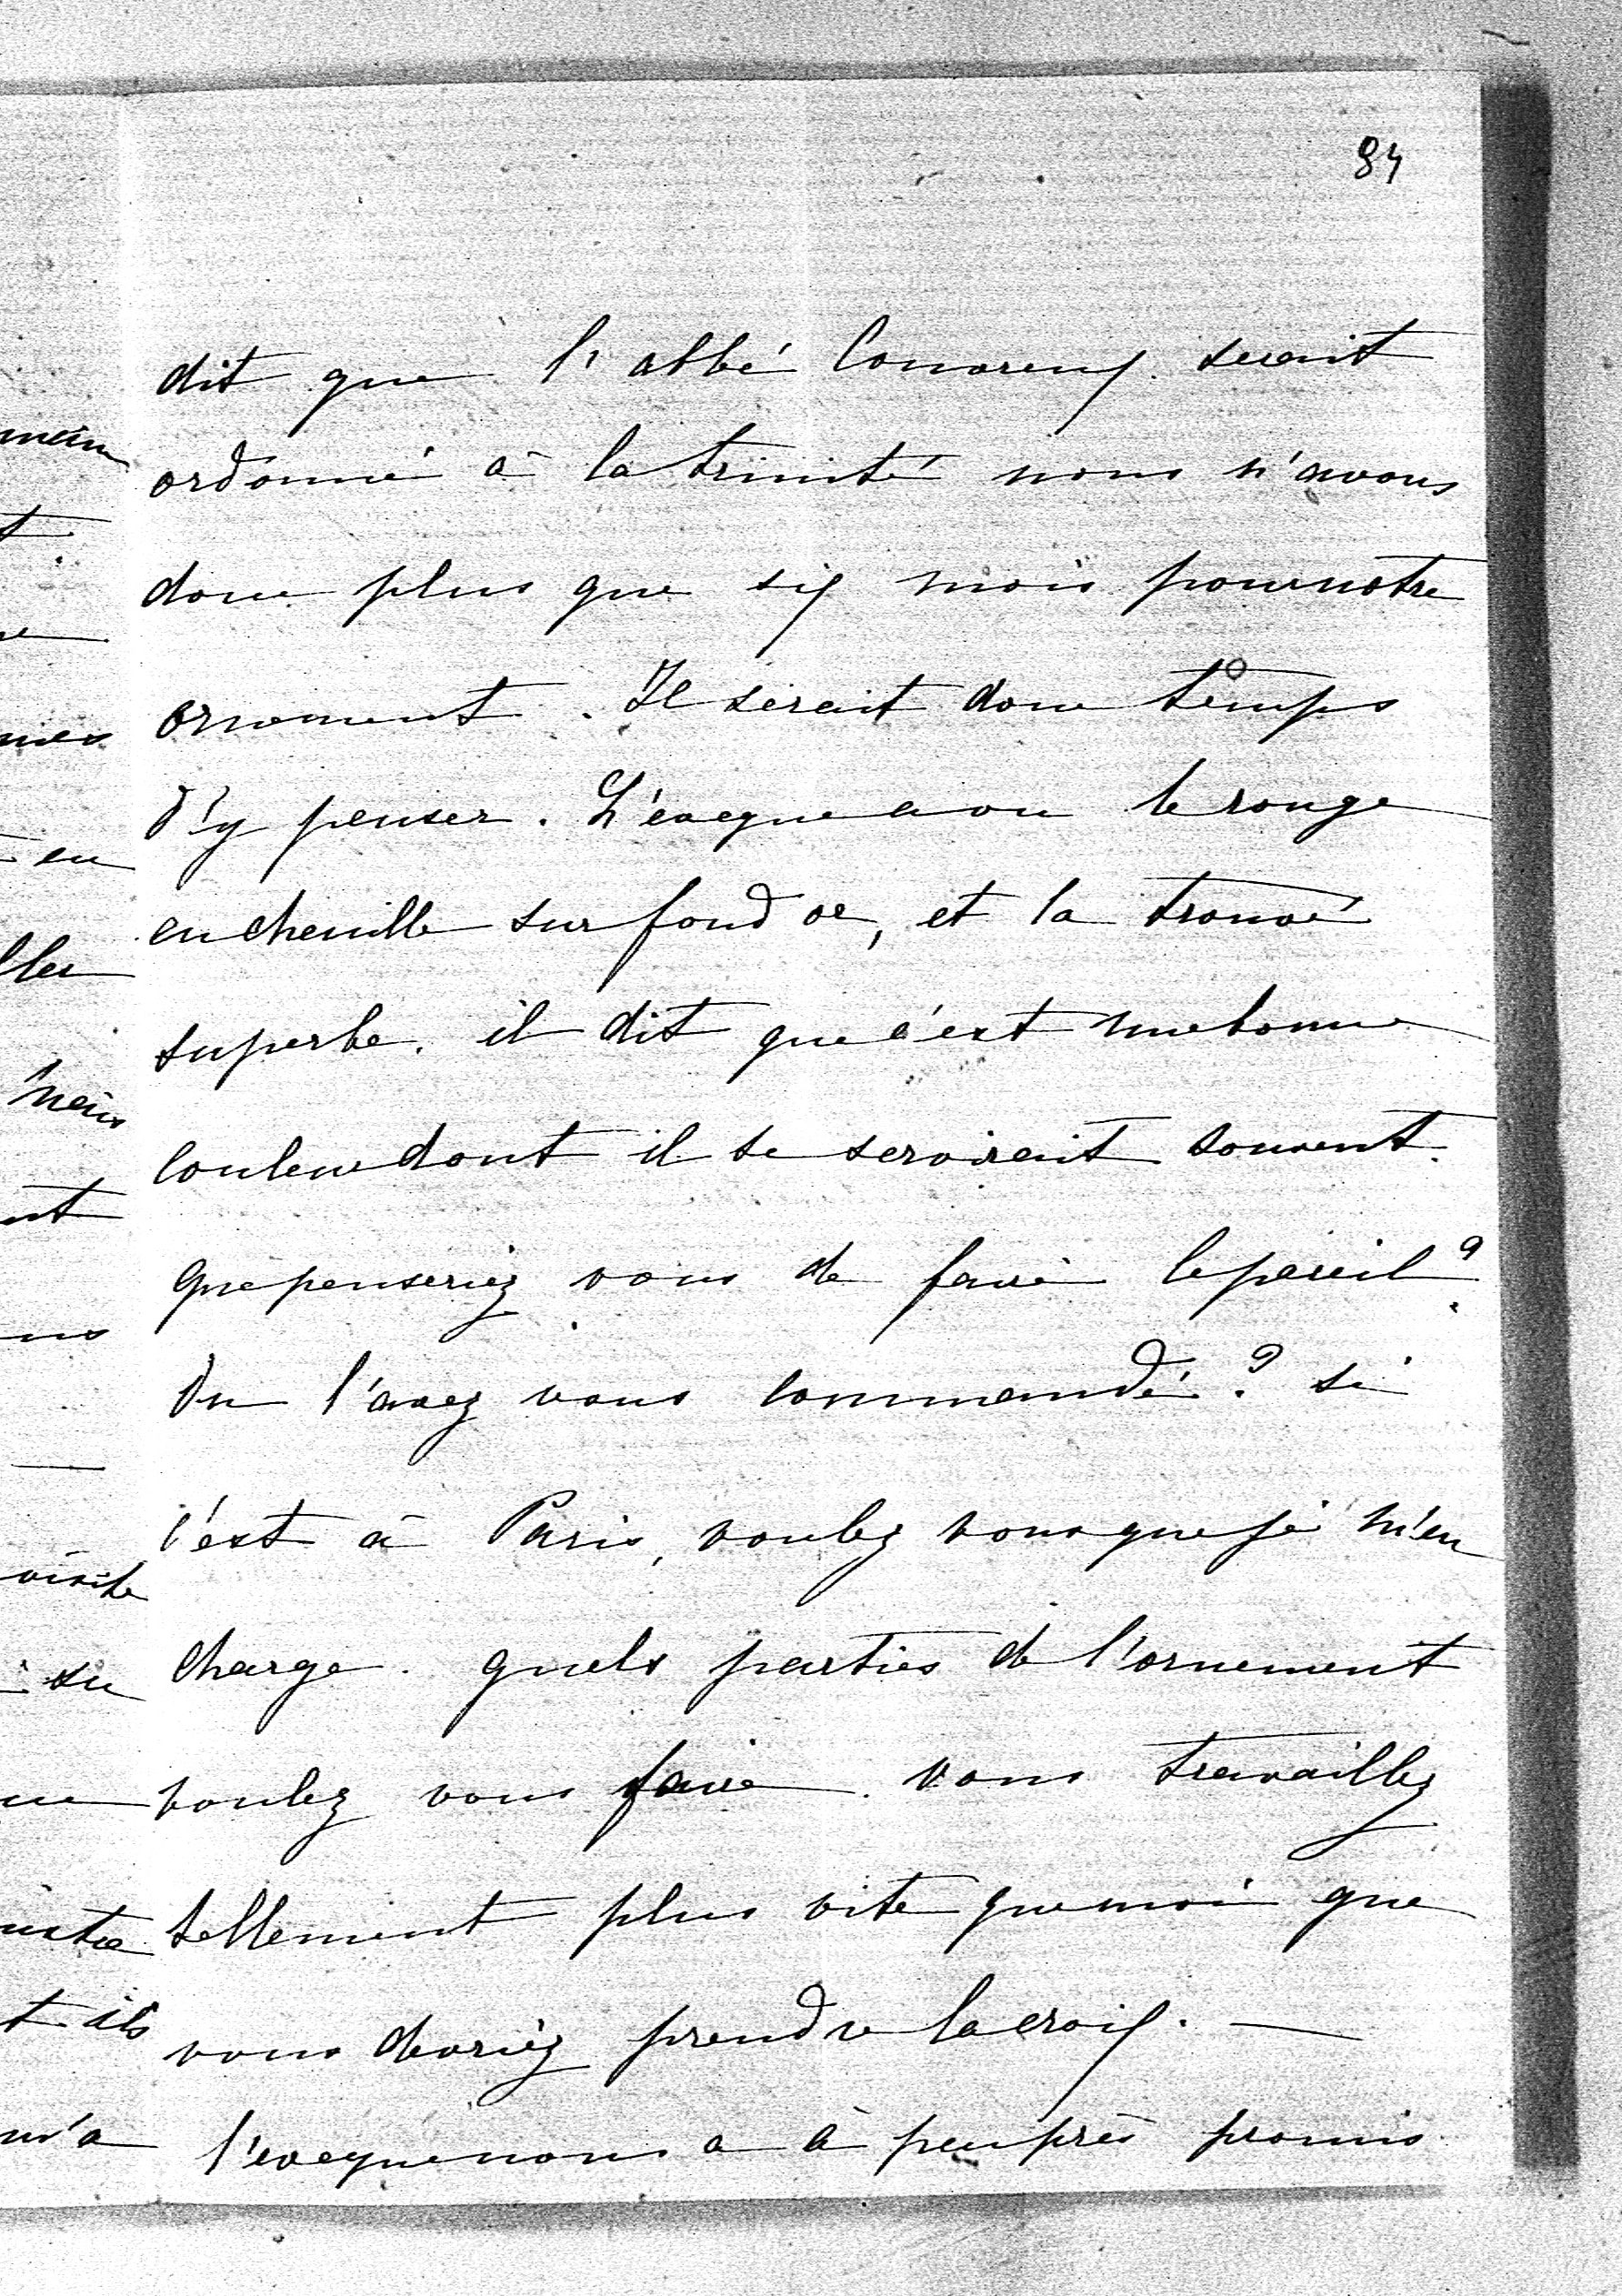 84
dit que l'abbé serait
ordonné à la trinité nous n'avons
donc plus que six mois pour notre
ornement. Il serait donc temps
d'y penser. L'eveque a vu le rouge
en chenille sur fond or, et la trouvé
superbe. il dit que c'est une bonne
couleur dont il se servirait souvent.
que penseriez vous de faire le pareil?
Ou l'avez vous commandé? si
c'est à Paris, voulez vous que je m'en
charge. quels parties de l'ornement
voulez vous faire. vous travaillez
tellement plus vite que moi que
vous devriez prendre la croix. —
l'eveque nous a à peu près promis